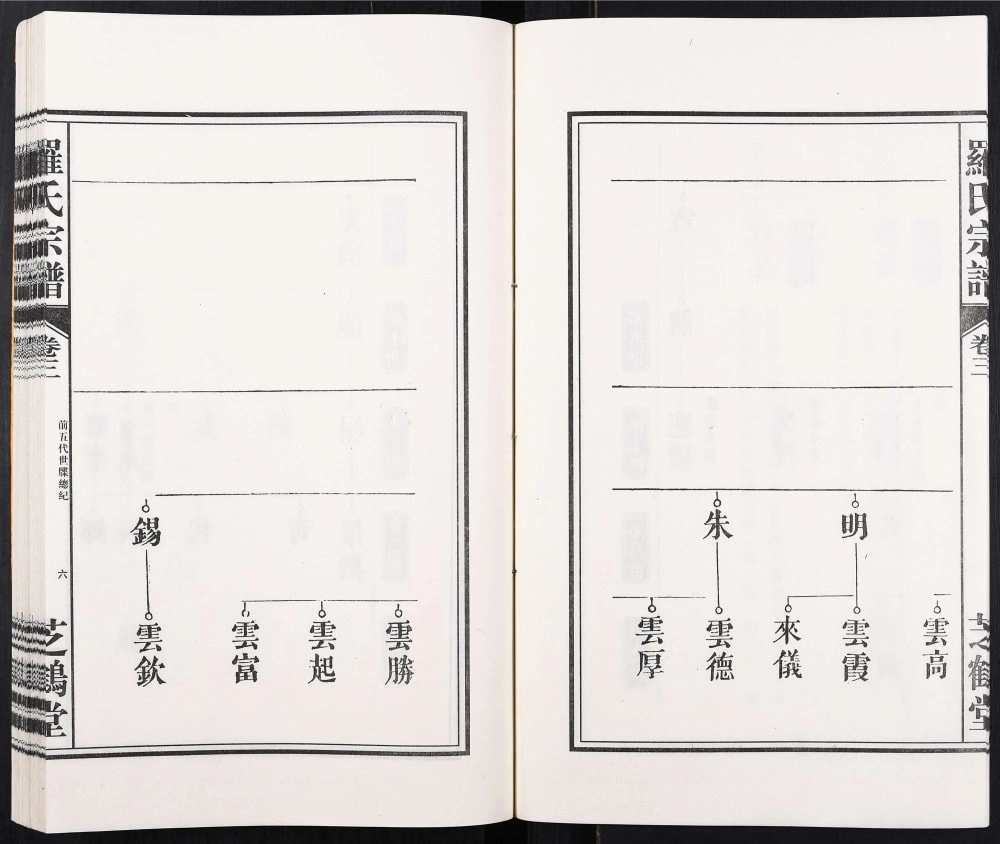 羅氏宗譜
卷三
芝鶴堂
明
朱
雲高
雲霞
來儀
雲德
雲厚
錫
雲勝
雲起
雲富
雲欽
羅氏宗譜
卷三
前五代世牒總紀
六
芝鶴堂